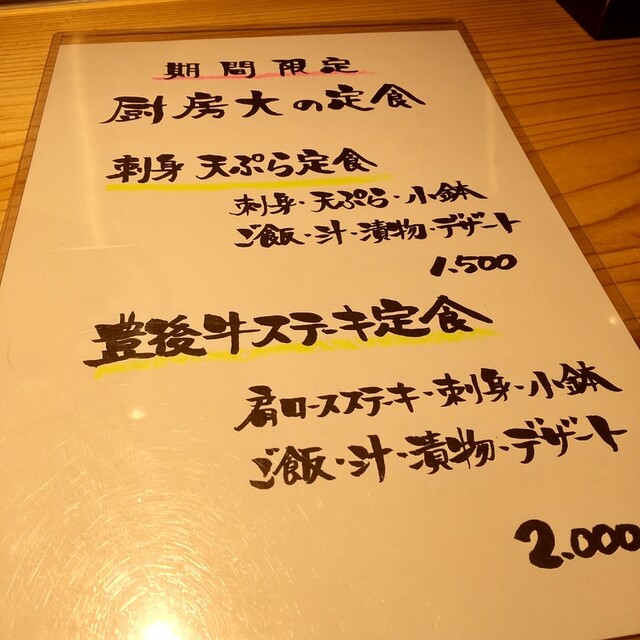 期間限定
厨房大の定食
刺身 天ぷら定食
刺身・天ぷら・小鉢
ご飯・汁・漬物・デザート
1,500
豊後牛ステーキ定食
肩ロースステーキ・刺身・小鉢
ご飯・汁・漬物・デザート
2.000